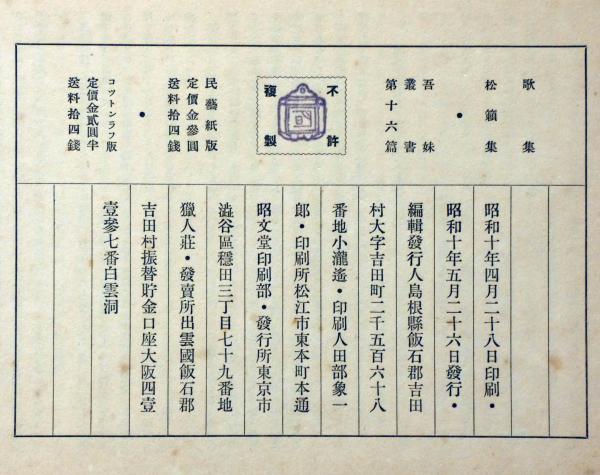 歌集
松籟集
•
吾妹
叢書
第十六篇
不許
複製
民藝紙版
定價金參圓
送料拾四錢
•
コツトンラフ版
定價金貳圓半
送料拾四錢
昭和十年四月二十八日印刷•
昭和十年五月二十六日發行•
編輯發行人島根縣飯石郡吉田
村大字吉田町二千五百六十八
番地小瀧遙•印刷人田部象一
郎•印刷所松江市東本町本通
昭文堂印刷部•發行所東京市
澁谷區穩田三丁目七十九番地
獵人莊•發賣所出雲國飯石郡
吉田村振替貯金口座大阪四壹
壹參七番白雲洞